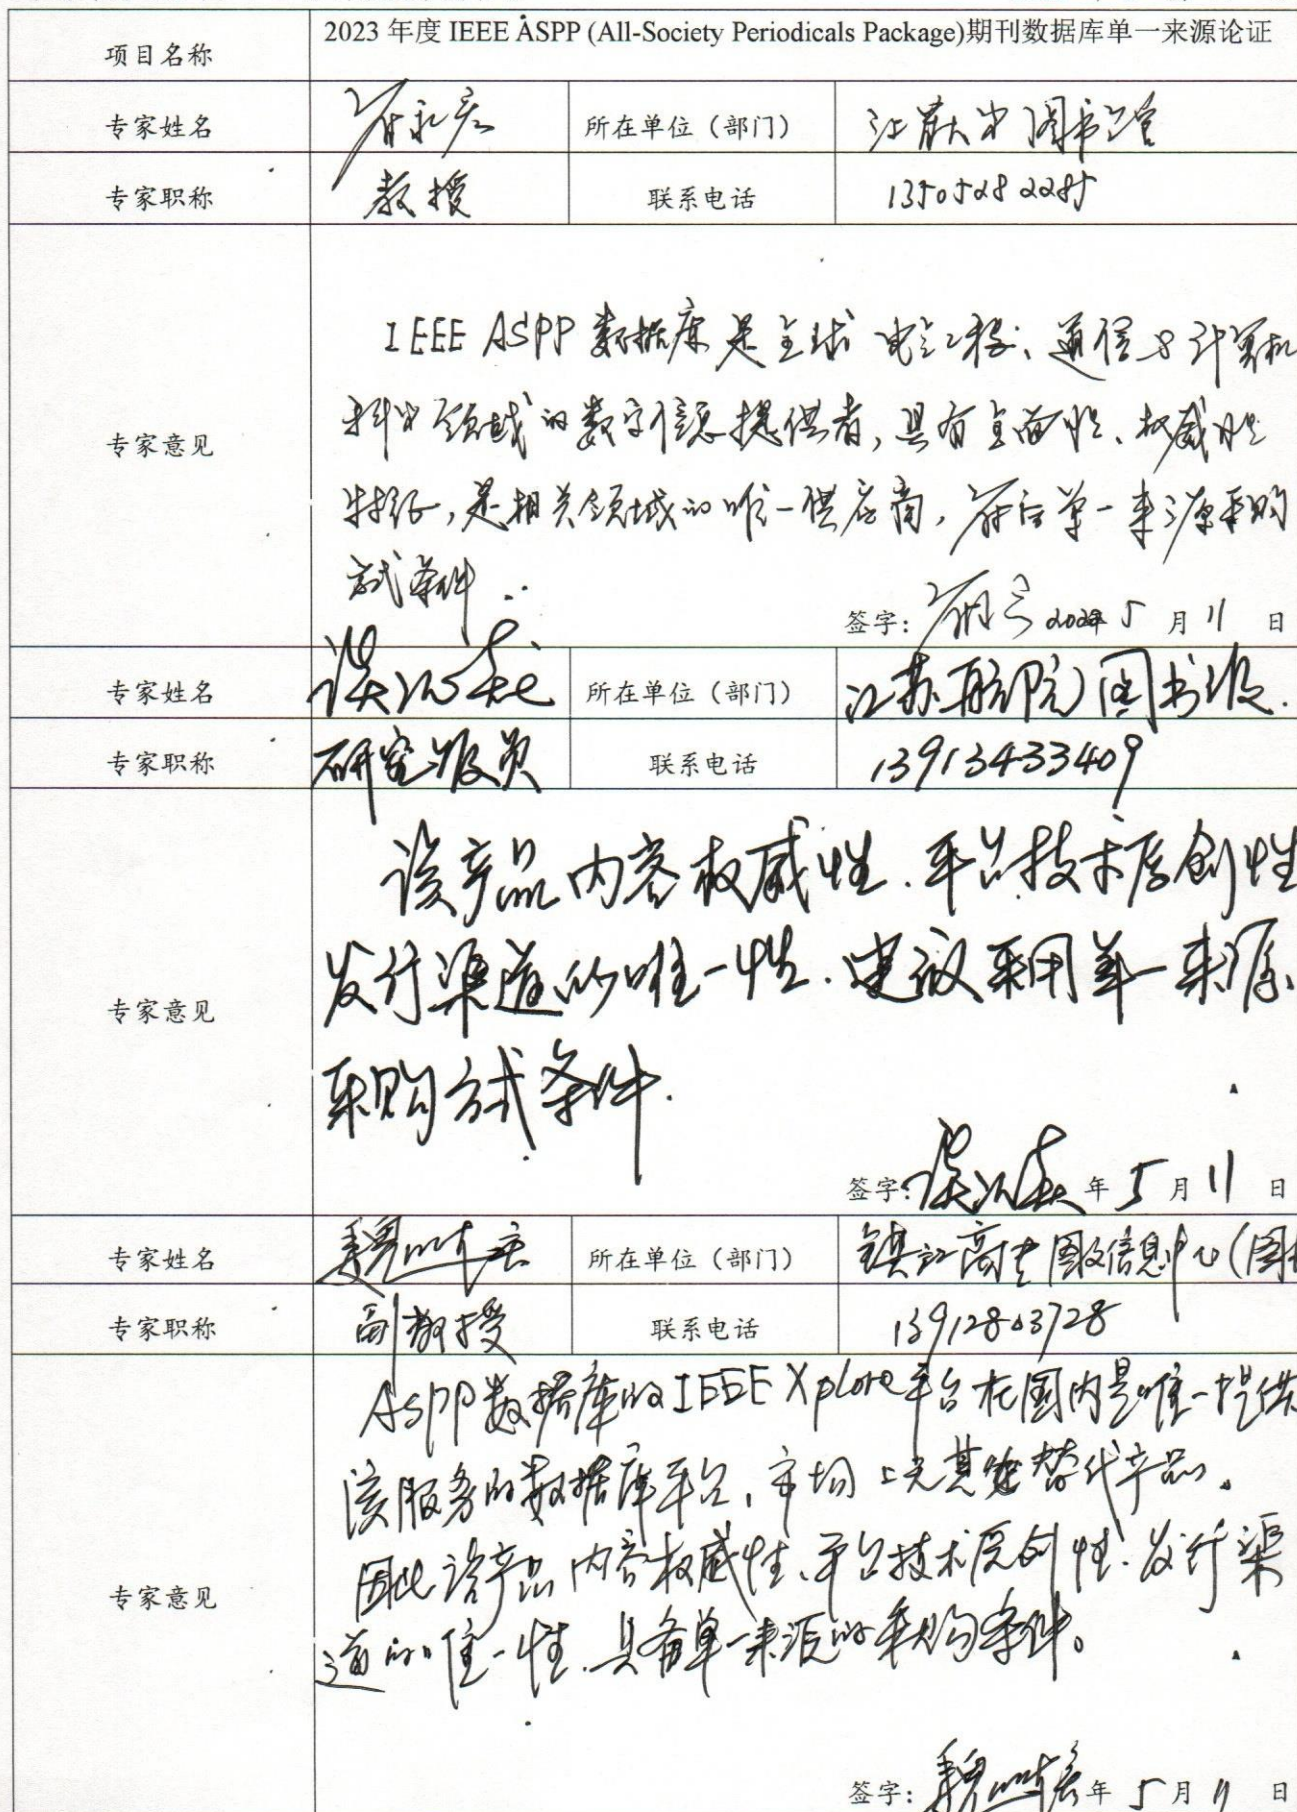 项目名称 2023 年度 IEEE ASPP (All-Society Periodicals Package)期刊数据库单一来源论证
专家姓名 所在单位（部门） 江苏大学图书馆
专家职称 教授 联系电话 13505282285
IEEE ASPP 数据库是全球电气工程、通信与计算机
科学领域的数字信息提供者，具有全面性、权威性
专家意见
特征，是相关领域的唯一供应商，符合单一来源采购
方式条件.
签字： 5 月 11 日
专家姓名 所在单位（部门） 图书馆.
专家职称 研究馆员 联系电话 13913433409
该产品内容权威性.平台技术原创性
发行渠道的唯一性.建议采用单一来源
专家意见
采购方式条件.
签字： 年 5 月 11 日
专家姓名 魏 所在单位（部门） 镇江高专图文信息中心(图
专家职称 副教授 联系电话 13912803728
ASPP数据库的IEEE Xplore平台在国内是唯一提供
该服务的数据库平台，市场上无其他替代产品。
因此该产品内容权威性、平台技术原创性、发行渠
专家意见
道的唯一性.具备单一来源的采购条件。
签字： 魏 年 5 月 11 日